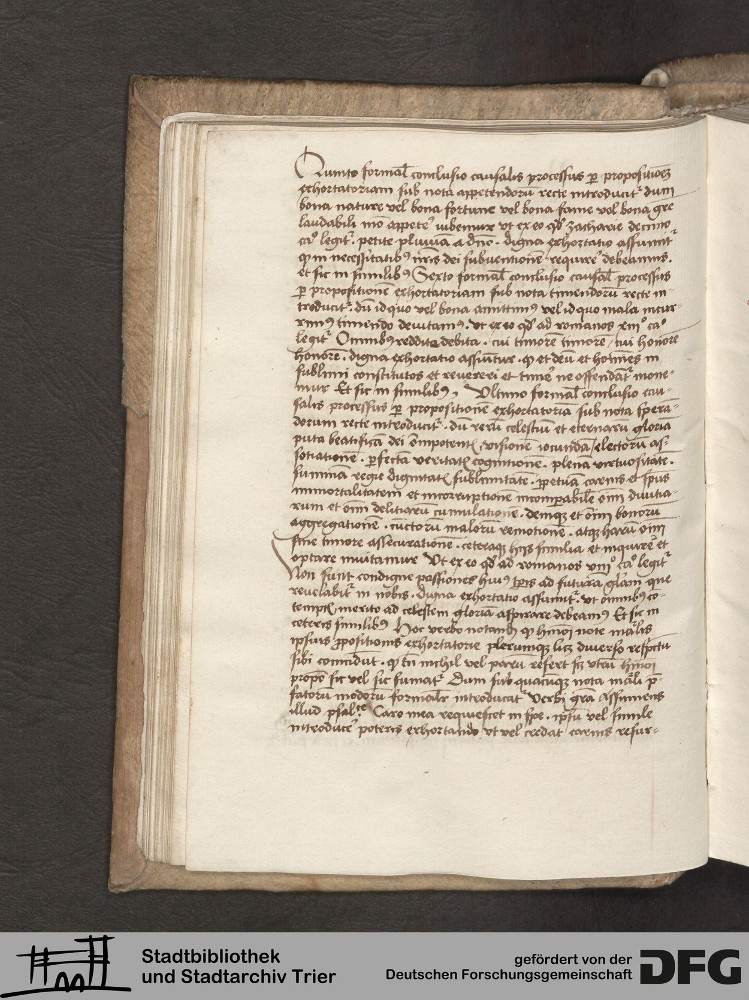 Quinto formal̄ conclusio causalis processus ꝑ propositionē
exhortatoriam sub nota appetendorū recte introducit᷑ dum
bona nature vel bona fortune vel bona fame vel bona gr̄e
laudabili mō appete᷑ iubemur vt ex eo qd̓ zacharie decimo
ca° legit᷑ · petite pluuiā a dn̄o · digna exhortatio assumit᷑
ꝙ in necessitatibꝰ nr̄is dei subuentionē requirē debeamus ·
et sic in similibꝰ Sexto formal̄ conclusio causal̄ processus
ꝑ propositionē exhortatoriam sub nota timendorū recte in-
troducit᷑ · dū id quo vel bona amittimꝰ vel id quo mala incur
rimꝰ timendo deuitamꝰ · vt ex eo qd̓ ad romanos xiii° ca°
legit᷑ Omnibꝰ reddite debita · cui timorē timorē / cui honorē
honorē · digna exhortatio assumitur · ꝙ et deū et hoīnes in
sublimi constitutos et reuereri et timē ne offendāt᷑ mone-
mur Et sic in similibꝰ , Vltimo formal̄ conclusio cau-
salis processus ꝑ propositionē exhortatoria sub nota spera-
dorum recte introducit᷑ · dū rerū celestiū et eternarū gloria
puta beatificā dei om̄potent᷒ visionē iocundā electorū as-
sotiationē · ꝑfectā veritat᷒ cognitionē · plenā virtuositatē ·
summā regie dignitat᷒ sublimitatē · ꝑpetuā carnis et sp̄us
immortalitatem et incorruptionē incomꝑabilē om̄i diuitia-
rum et om̄i delitiarū cumulationē · demqꝫ et om̄i bonorū
aggregationē · cūctorū malorū remotionē · atqꝫ harū om̄i
sine timore assecurationē · ceteraqꝫ hijs similia et inquirē et
optare inuitamur Vt ex eo qd̓ ad romanos viii° ca° legit᷑
Non sunt condigne passiones huiꝰ tp̄is ad futurā gl̄am que
reuelabit᷑ in nobis · digna exhortatio assumit᷑ · vt omnibꝰ cō-
temptis merito ad celestem gloriā aspirare debeamꝰ Et sic in
ceteris similibꝰ Hoc verbo notanbꝰ ꝙ hmōi note mālis
ipsius ꝓpositionis exhortatorie plerumqꝫ licꝫ diuerso respctu
sibi coincidūt · ꝙ tn̄ nichil vel parū refert sꝫ vtrū hmōi
propō sic vel sic sumat᷑ Dum sub quacūqꝫ nota māli p̄
fatorū modorū formalr̄ introducat᷑ Verbi grā Assumens
illud psal̄te Caro mea requiescet in spe · ipsū vel simile
introducē poteris exhortando vt vel credat᷑ carnis resur-
Stadtbibliothek
und Stadtarchiv Trier
gefördert von der
Deutschen Forschungsgemeinschaft
DFG